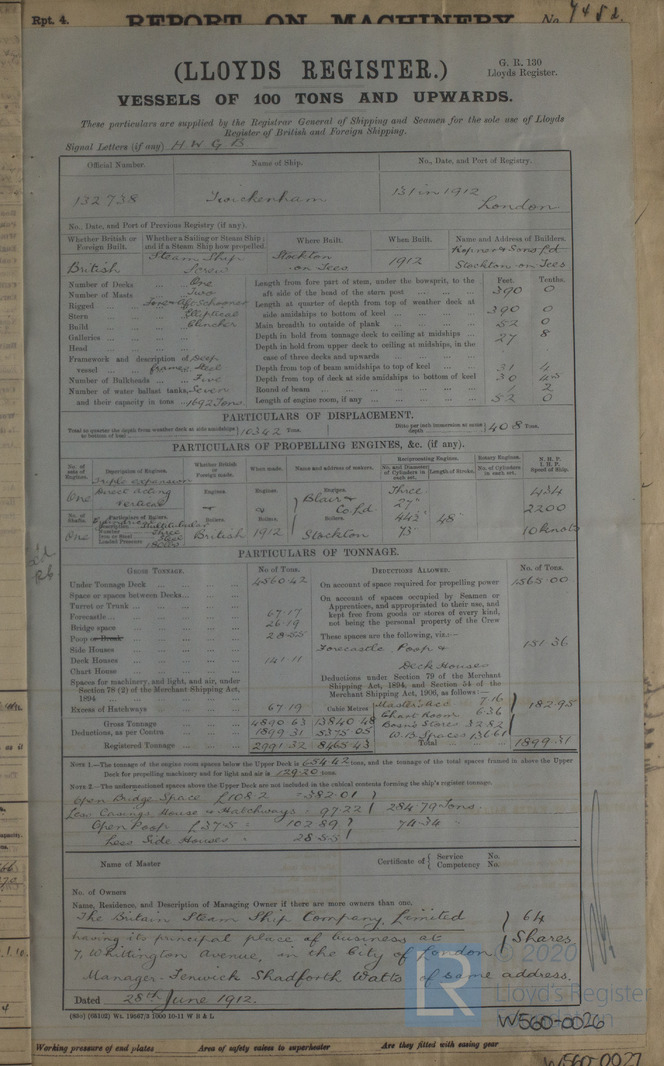 Rpt. 4. REPORT ON MACHINERY No. 7482.
(LLOYDS REGISTER.)
G. R. 130
Lloyds Register.
VESSELS OF 100 TONS AND UPWARDS.
These particulars are supplied by the Registrar General of Shipping and Seamen for the sole use of Lloyds
Register of British and Foreign Shipping.
Signal Letters (if any) H.W.G.B
Official Number. Name of Ship. No., Date, and Port of Registry.
132738 Twickenham 131 in 1912
London
No., Date, and Port of Previous Registry (if any).
Whether British or Foreign Built. Whether a Sailing or Steam Ship; and if a Steam Ship how propelled. Where Built. When Built. Name and Address of Builders.
British Steam Ship Screw Stockton on Tees 1912 Ropner & Sons Ld Stockton-on-Tees
Number of Decks One
Number of Masts Two
Rigged Fore & Aft Schooner
Stern Elliptical
Build Clencher
Galleries
Head
Framework and description of vessel Deep frames Steel
Number of Bulkheads Five
Number of water ballast tanks, Seven
and their capacity in tons 1692 Tons
Feet. Tenths.
Length from fore part of stem, under the bowsprit, to the aft side of the head of the stern post 390 0
Length at quarter of depth from top of weather deck at side amidships to bottom of keel 390 0
Main breadth to outside of plank 52 0
Depth in hold from tonnage deck to ceiling at midships 27 8
Depth in hold from upper deck to ceiling at midships, in the case of three decks and upwards
Depth from top of beam amidships to top of keel 31 4
Depth from top of deck at side amidships to bottom of keel 30 45
Round of beam 1 2
Length of engine room, if any 52 0
PARTICULARS OF DISPLACEMENT.
Total to quarter the depth from weather deck at side amidships to bottom of keel 10342 Tons. Ditto per inch immersion at same depth 40.8 Tons.
PARTICULARS OF PROPELLING ENGINES, &c. (if any).
No. of sets of Engines. Description of Engines. Whether British or Foreign made. When made. Name and address of makers. Reciprocating Engines. Rotary Engines. N. H. P. I. H. P. Speed of Ship.
No. and Diameter of Cylinders in each set. Length of Stroke. No. of Cylinders in each set.
One Triple expansion Direct acting Vertical
Engines. Engines. Engines.
Blair & Co Ld Three 434
27" 2200
No. of Shafts. Particulars of Boilers. Boilers. Boilers. Boilers. 44½" 48"
Description Cylindrical Multitubular
Number Three
Iron or Steel Steel
Loaded Pressure 180 lbs
One British 1912 Stockton 73" 10 knots
PARTICULARS OF TONNAGE.
GROSS TONNAGE. No of Tons. DEDUCTIONS ALLOWED. No. of Tons.
Under Tonnage Deck 4560.42
Space or spaces between Decks
Turret or Trunk
Forecastle 67.17
Bridge space 26.19
Poop or Break 28.55
Side Houses
Deck Houses 141.11
Chart House
Spaces for machinery, and light, and air, under Section 78 (2) of the Merchant Shipping Act, 1894
Excess of Hatchways 67.19
Gross Tonnage 4890.63
Deductions, as per Contra 1899.31
Registered Tonnage 2991.32
Cubic Metres
13840.48
5375.05
8465.43
On account of space required for propelling power 1565.00
On account of spaces occupied by Seamen or Apprentices, and appropriated to their use, and kept free from goods or stores of every kind, not being the personal property of the Crew
These spaces are the following, viz.:—
Forecastle Poop & Deck Houses 151.36
Deductions under Section 79 of the Merchant Shipping Act, 1894, and Section 54 of the Merchant Shipping Act, 1906, as follows:—
Master's Acc 7.16
Chart Room 6.36
Bosn's Stores 32.82
W.B. Spaces 136.61
182.95
Total 1899.31
NOTE 1.—The tonnage of the engine room spaces below the Upper Deck is 654.42 tons, and the tonnage of the total spaces framed in above the Upper
Deck for propelling machinery and for light and air is 129.20 tons.
NOTE 2.—The undermentioned spaces above the Upper Deck are not included in the cubical contents forming the ship's register tonnage.
Open Bridge Space 108.2 = 382.01
Less Casings House & Hatchways = 97.22 284.79 Tons
Open Poop 37.5 = 102.89 74.34
Less Side Houses = 28.55
Name of Master Certificate of { Service No.
Competency No.
No. of Owners
Name, Residence, and Description of Managing Owner if there are more owners than one.
The Britain Steam Ship Company, Limited } 64
having its principal place of business at } Shares
7, Whittington Avenue, in the City of London
Manager-Fenwick Shadforth Watts of same address.
Dated 28th June 1912.
(880) (58102) Wt. 19567/3 1000 10-11 W B & L
© 2020
LR
Lloyd's Register
Foundation
W560-0026
Working pressure of end plates Area of safety valves to superheater Are they fitted with easing gear
W560-0027